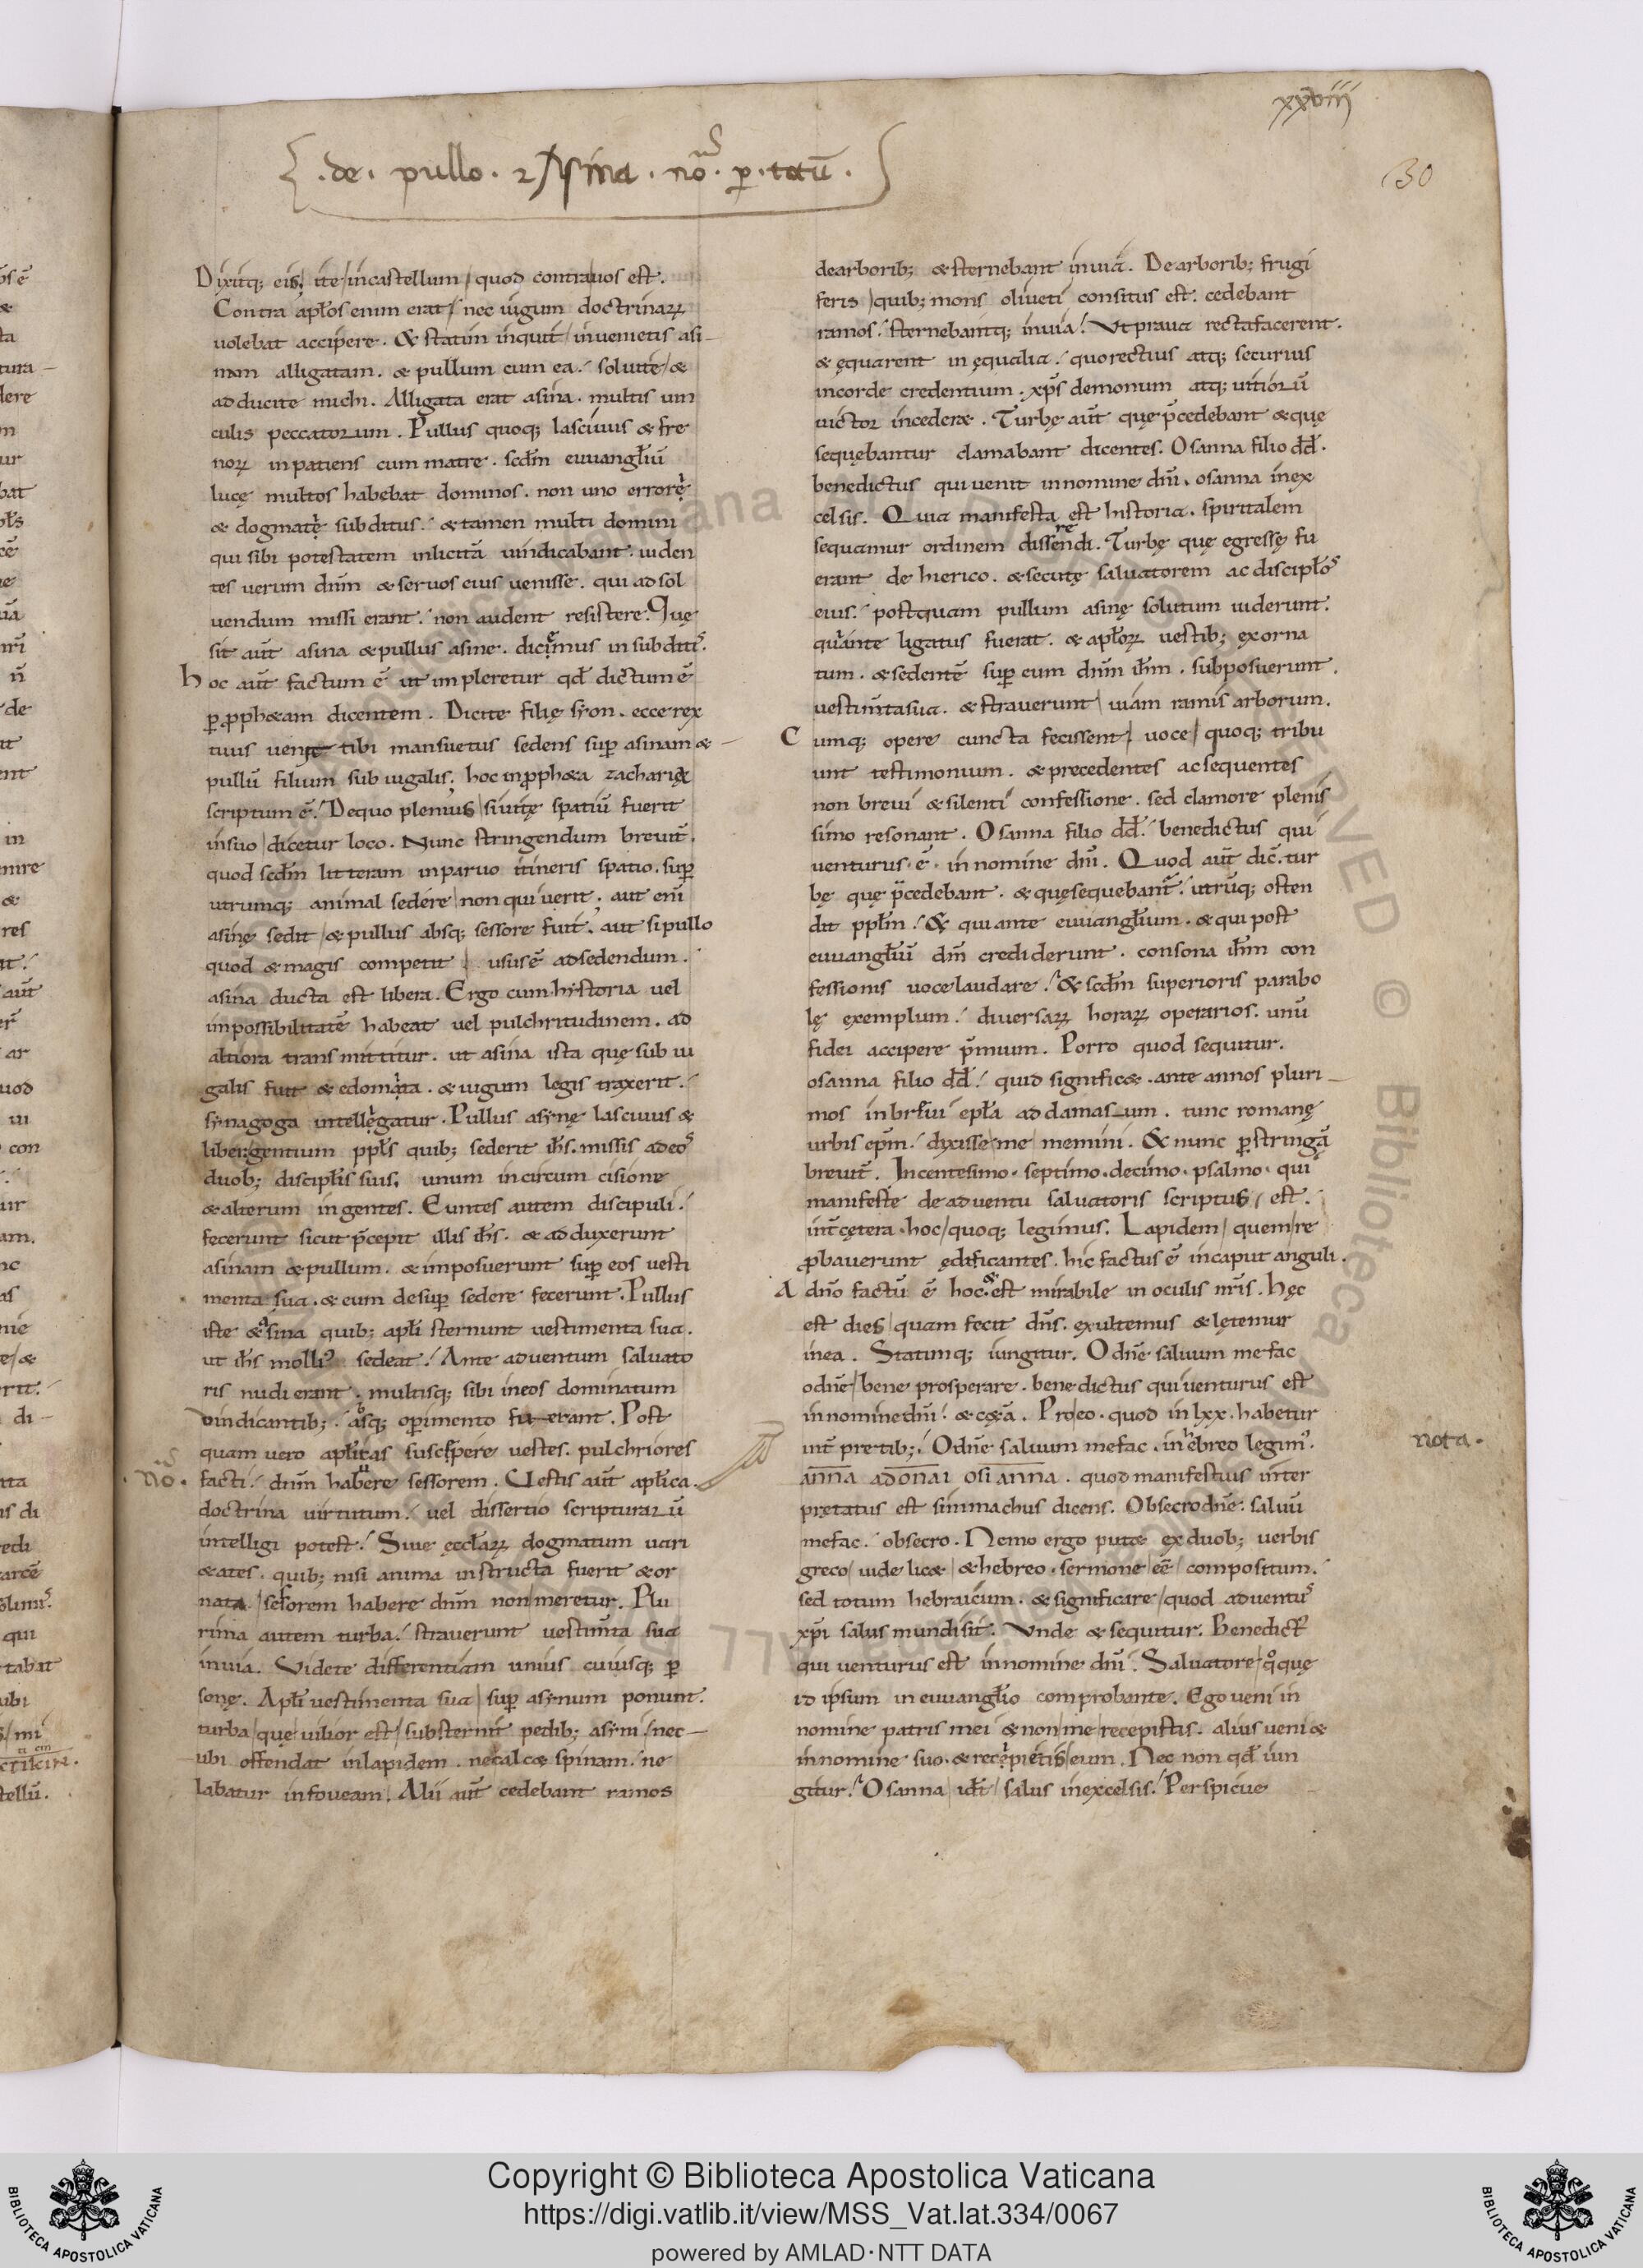 xxviii
30
{ .de. pullo. ⁊ Asina. nō. ꝑ. totū. }
Dixitq; eis; ite incastellum quod contrauos est.
Contra apłos enim erat nec iugum doctrinaꝝ
uolebat accipere. & statim inquit inuenietis asi-
nam alligatam. & pullum cum ea. soluite &
adducite michi. Alligata erat asina. multis uin
culis peccatorum. Pullus quoq; lasciuus & fre
noꝝ inpatiens cum matre. scdm euuangłiū
lucę multos habebat dominos. non uno errorę
& dogmatę subditus. & tamen multi domini
qui sibi potestatem inlicitā uindicabant. uiden
tes uerum dnm & seruos eius uenisse. qui ad sol
uendum missi erant. non audent resistere. Quę
sit aūt asina & pullus asine. dicemus in subditis.
hoc aūt factum ē ut impleretur qd dictum ē
ꝑ ꝓph&am dicentem. Dicite filię syon. ecce rex
tuus uenit tibi mansuetus sedens suꝑ asinam &
pullū filium subiugalis; hoc in ꝓph&a zacharię
scriptum ē. Dequo plenius si uitę spatiū fuerit
insuo dicetur loco. Nunc stringendum breuiт̄.
quod scdm litteram inparuo itineris spatio. suꝑ
utrumq; animal sedere non quiuerit; aut enī
asinę sedit & pullus absq; sessore fuit; aut si pullo
quod & magis competit usus ē adsedendum.
asina ducta est libera. Ergo cum hystoria uel
impossibilitatē habeat uel pulchritudinem. ad
altiora transmittitur. ut asina ista quę sub iu
galis fuit & edomita. & iugum legis traxerit.
synagoga intelligatur. Pullus asynę lasciuus &
liber; gentium ppłs quib; sederit ihs. missis ad eos
duob; disciplis suis. unum in circum cisione
& alterum ingentes. Euntes autem discipuli.
fecerunt sicut p̄cepit illis ihs. & adduxerunt
asinam & pullum. & imposuerunt suꝑ eos uesti
menta sua. & eum desuꝑ sedere fecerunt. Pullus
iste & asina quib; apłi sternunt uestimenta sua.
ut ihs molli? sedeat. Ante aduentum saluato
ris nudi erant. multisq; sibi ineos dominatum
uindicantib; absq; oꝑimento fuerant. Post
quam uero apłicas suscipere uestes. pulchriores
nō. facti. dnm habuere sessorem. Uestis aūt apłica.
doctrina uirtutum. uel dissertio scripturarū
intelligi potest. Siue ęccłaꝝ dogmatum uari
&ates. quib; nisi anima instructa fuerit & or
nata sessorem habere dnm non meretur. Plu
rima autem turba. strauerunt uestim̄ta sua
inuia. Videte differentiam unius cuiusq; ꝑ
sonę. Apłi uestimenta sua suꝑ asynum ponunt.
turba quę uilior est substernit pedib; asyni nec-
ubi offendat inlapidem. necalc& spinam. ne
labatur infoueam. Alii aūt cedebant ramos
dearborib; & sternebant inuia. Dearborib; frugi
feris quib; mons oliueti consitus est. cedebant
ramos. sternebantq; inuia. Vt praua rectafacerent.
& ęquarent in ęqualia. quorectius atq; securius
incorde credentium. xp̄s demonum atq; uitiorū
uictor inceder&. Turbę aūt quę p̄cedebant & quę
sequębantur clamabant dicentes. Osanna filio dd̄.
benedictus qui uenit innomine dn̄i. osanna inex
celsis. Quia manifesta est historia. spiritalem
sequamur ordinem disserendi. Turbę quę egressę fu
erant de hierico. & secutę saluatorem ac discipłos
eius. postquam pullum asinę solutum uiderunt.
qui ante ligatus fuerat. & apłoꝝ uestib; exorna
tum. & sedentē suꝑ eum dnm ihm. subposuerunt
uestim̄ta sua. & strauerunt uiam ramis arborum.
Cumq; opere cuncta fecissent uoce quoq; tribu
unt testimonium. & precedentes ac sequentes
non breui & silenti confessione. sed clamore plenis
simo resonant. Osanna filio dd̄. benedictus qui
uenturus ē innomine dn̄i. Quod aūt dic̄. tur
bę quę p̄cedebant. & quę sequebant̄. utrūq; osten
dit ppłm. & qui ante euuangłium. & qui post
euuangłiū dn̄m crediderunt. consona ihm con
fessionis uoce laudare. & scdm superioris parabo
lę exemplum. diuersaꝝ horaꝝ operarios. unū
fidei accipere p̄mium. Porro quod sequitur.
osanna filio dd̄. quid signific&. ante annos pluri-
mos in breui epła ad damasum. tunc romanę
urbis epm̄. dixisse me memini. & nunc ꝑstringā
breuiт̄. Incentesimo. septimo. decimo. psalmo. qui
manifeste de aduentu saluatoris scriptus est.
int̄ cętera. hoc quoq; legimus. Lapidem quem re
ꝓbauerunt ędificantes. hic factus ē incaput anguli.
A dn̄o factū ē hoc. & est mirabile in oculis nr̄is. Hęc
est dies quam fecit dn̄s. exultemus & lętemur
inea. Statimq; iungitur. O dn̄e saluum me fac
odn̄e bene prosperare. benedictus qui uenturus est
innomine dn̄i. & c&ā. Pro eo. quod in lxx. habetur
int̄ pretib; O dn̄e saluum mefac. in hebreo legim?.
nota.
anna adonai osi anna. quod manifestius inter
pretatus est simmachus dicens. Obsecro dn̄e: saluū
mefac. obsecro. Nemo ergo put& ex duob; uerbis
greco uidelic& & hebreo. sermone eē compositum.
sed totum hebraicum. & significare quod aduentus
xp̄i salus mundi sit. Vnde & sequitur. Benedict?
qui uenturus est innomine dn̄i. Saluatore qoquę
id ipsum in euuangłio comprobante. Ego ueni in
nomine patris mei & non me recepistis. alius ueni&
innomine suo. & recipietis eum. Nec non qd iun
gitur. Osanna idt salus inexcelsis. Perspicue
Copyright © Biblioteca Apostolica Vaticana
https://digi.vatlib.it/view/MSS_Vat.lat.334/0067
powered by AMLAD·NTT DATA
BIBLIOTECA APOSTOLICA VATICANA
BIBLIOTECA APOSTOLICA VATICANA